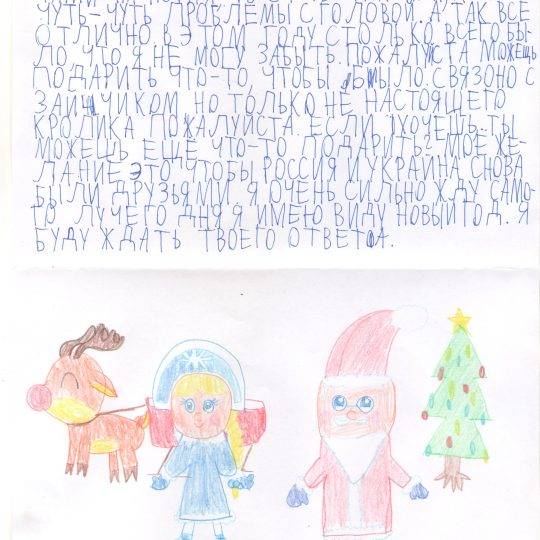 ЧУТЬ-ЧУТЬ ПРОБЛЕМЫ С ГОЛОВОЙ. А ТАК ВСЁ
ОТЛИЧНО. В ЭТОМ ГОДУ СТОЛЬКО ВСЕГО БЫ-
ЛО, ЧТО Я НЕ МОГУ ЗАБЫТЬ. ПОЖАЛУЙСТА МОЖЕШЬ
ПОДАРИТЬ ЧТО-ТО, ЧТОБЫ БЫЛО СВЯЗОНО С
ЗАЙЧИКОМ НО ТОЛЬКО НЕ НАСТОЯЩЕГО
КРОЛИКА ПОЖАЛУЙСТА. ЕСЛИ ХОЧЕШЬ ТЫ
МОЖЕШЬ ЕЩЁ ЧТО-ТО ПОДАРИТЬ? МОЁ ЖЕ-
ЛАНИЕ ЭТО ЧТОБЫ РОССИЯ И УКРАИНА СНОВА
БЫЛИ ДРУЗЬЯМИ. Я ОЧЕНЬ СИЛЬНО ЖДУ САМО-
ГО ЛУЧЕГО ДНЯ Я ИМЕЮ ВИДУ НОВЫЙ ГОД. Я
БУДУ ЖДАТЬ ТВОЕГО ОТВЕТА.